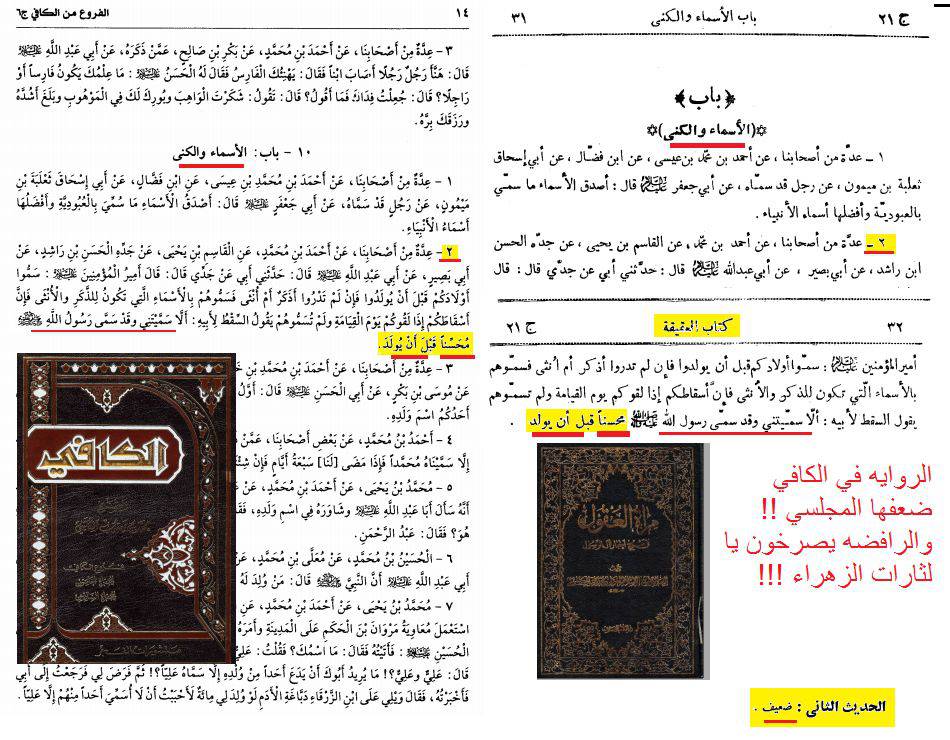 ج ٢١ باب الأسماء والكنى ٣١
﴿ باب ﴾
✡(الأسماء والكنى)✡
١ ــ عدّة من أصحابنا ، عن أحمد بن محمّد بن عيسى ، عن ابن فضّال ، عن أبي إسحاق
ثعلبة بن ميمون ، عن رجل قد سمّاه ، عن أبي جعفر عليه السلام قال : أصدق الأسماء ما سمّي
بالعبوديّة وأفضلها أسماء الأنبياء .
٢ ــ عدّة من أصحابنا ، عن أحمد بن محمّد ، عن القاسم بن يحيى ، عن جدّه الحسن
ابن راشد ، عن أبي بصير ، عن أبي عبدالله عليه السلام قال : حدّثني أبي عن جدّي قال : قال
٣٢ كتاب العقيقة ج ٢١
أمير المؤمنين عليه السلام : سمّوا أولادكم قبل أن يولدوا فإن لم تدروا أذكر أم أنثى فسمّوهم
بالأسماء الّتي تكون للذكر والأنثى فإنَّ أسقاطكم إذا لقوكم يوم القيامة ولم تسمّوهم
يقول السقط لأبيه : ألّا سمّيتني وقد سمّى رسول الله صلى الله عليه وآله محسناً قبل أن يولد .
مرآة العقول
الروايه في الكافي
ضعفها المجلسي !!
والرافضه يصرخون يا
لثارات الزهراء !!!
الحديث الثانى : ضعيف .
١٤ الفروع من الكافي ج٦
٣ - عِدَّةٌ مِنْ أَصْحَابِنَا، عَنْ أَحْمَدَ بْنِ مُحَمَّدٍ، عَنْ بَكْرِ بْنِ صَالِحٍ، عَمَّنْ ذَكَرَهُ، عَنْ أَبِي عَبْدِ اللَّهِ عليه السلام
قَالَ: هَنَّأَ رَجُلٌ رَجُلًا أَصَابَ ابْناً فَقَالَ: يَهْنِئُكَ الْفَارِسُ فَقَالَ لَهُ الْحَسَنُ عليه السلام : مَا عِلْمُكَ يَكُونُ فَارِساً أَوْ
رَاجِلًا؟ قَالَ: جُعِلْتُ فِدَاكَ فَمَا أَقُولُ؟ قَالَ: تَقُولُ: شَكَرْتَ الْوَاهِبَ وَبُورِكَ لَكَ فِي الْمَوْهُوبِ وَبَلَغَ أَشُدَّهُ
وَرَزَقَكَ بِرَّهُ.
١٠ - باب: الأسماء والكنى
١ - عِدَّةٌ مِنْ أَصْحَابِنَا، عَنْ أَحْمَدَ بْنِ مُحَمَّدِ بْنِ عِيسَى، عَنِ ابْنِ فَضَّالٍ، عَنْ أَبِي إِسْحَاقَ ثَعْلَبَةَ بْنِ
مَيْمُونٍ، عَنْ رَجُلٍ قَدْ سَمَّاهُ، عَنْ أَبِي جَعْفَرٍ عليه السلام قَالَ: أَصْدَقُ الْأَسْمَاءِ مَا سُمِّيَ بِالْعُبُودِيَّةِ وَأَفْضَلُهَا
أَسْمَاءُ الْأَنْبِيَاءِ.
٢ - عِدَّةٌ مِنْ أَصْحَابِنَا، عَنْ أَحْمَدَ بْنِ مُحَمَّدٍ، عَنِ الْقَاسِمِ بْنِ يَحْيَى، عَنْ جَدِّهِ الْحَسَنِ بْنِ رَاشِدٍ، عَنْ
أَبِي بَصِيرٍ، عَنْ أَبِي عَبْدِ اللَّهِ عليه السلام قَالَ: حَدَّثَنِي أَبِي عَنْ جَدِّي قَالَ: قَالَ أَمِيرُ الْمُؤْمِنِينَ عليه السلام : سَمُّوا
أَوْلَادَكُمْ قَبْلَ أَنْ يُولَدُوا فَإِنْ لَمْ تَدْرُوا أَذَكَرٌ أَمْ أُنْثَى فَسَمُّوهُمْ بِالْأَسْمَاءِ الَّتِي تَكُونُ لِلذَّكَرِ وَالْأُنْثَى فَإِنَّ
أَسْقَاطَكُمْ إِذَا لَقُوكُمْ يَوْمَ الْقِيَامَةِ وَلَمْ تُسَمُّوهُمْ يَقُولُ السِّقْطُ لِأَبِيهِ: أَلَّا سَمَّيْتَنِي وَقَدْ سَمَّى رَسُولُ اللَّهِ صلى الله عليه وآله
مُحَسِّناً قَبْلَ أَنْ يُولَدَ.
٣ - عِدَّةٌ مِنْ أَصْحَابِنَا، عَنْ أَحْمَدَ بْنِ مُحَمَّدِ بْنِ
عَنْ مُوسَى بْنِ بَكْرٍ، عَنْ أَبِي الْحَسَنِ عليه السلام قَالَ: أَوَّلُ
أَحَدُكُمُ اسْمَ وَلَدِهِ.
٤ - أَحْمَدُ بْنُ مُحَمَّدٍ، عَنْ بَعْضِ أَصْحَابِنَا، عَمَّنْ
إِلَّا سَمَّيْنَاهُ مُحَمَّداً فَإِذَا مَضَى [لَنَا] سَبْعَةُ أَيَّامٍ فَإِنْ
٥ - مُحَمَّدُ بْنُ يَحْيَى، عَنْ أَحْمَدَ بْنِ مُحَمَّدٍ، عَنْ
أَنَّهُ سَأَلَ أَبَا عَبْدِ اللَّهِ عليه السلام وَشَاوَرَهُ فِي اسْمِ وَلَدِهِ،
هُوَ؟ فَقَالَ: عَبْدُ الرَّحْمَنِ.
٦ - الْحُسَيْنُ بْنُ مُحَمَّدٍ، عَنْ مُعَلَّى بْنِ مُحَمَّدٍ،
أَبِي عَبْدِ اللَّهِ عليه السلام أَنَّ النَّبِيَّ صلى الله عليه وآله قَالَ: مَنْ وُلِدَ لَهُ
٧ - مُحَمَّدُ بْنُ يَحْيَى، عَنْ أَحْمَدَ بْنِ مُحَمَّدٍ،
اسْتَعْمَلَ مُعَاوِيَةُ مَرْوَانَ بْنَ الْحَكَمِ عَلَى الْمَدِينَةِ وَأَمَرَهُ
الْحُسَيْنِ عليه السلام : فَأَتَيْتُهُ فَقَالَ: مَا اسْمُكَ؟ فَقُلْتُ:
قَالَ: عَلِيٌّ وَعَلِيٌّ؟! مَا يُرِيدُ أَبُوكَ أَنْ يَدَعَ أَحَداً مِنْ وُلْدِهِ إِلَّا سَمَّاهُ عَلِيّاً؟! ثُمَّ فَرَضَ لِي فَرَجَعْتُ إِلَى أَبِي
فَأَخْبَرْتُهُ، فَقَالَ: وَيْلِي عَلَى ابْنِ الزَّرْقَاءِ دَبَّاغَةِ الْأَدَمِ لَوْ وُلِدَ لِي مِائَةٌ لَأَحْبَبْتُ أَنْ لَا أُسَمِّيَ أَحَداً مِنْهُمْ إِلَّا عَلِيّاً.
الكافي